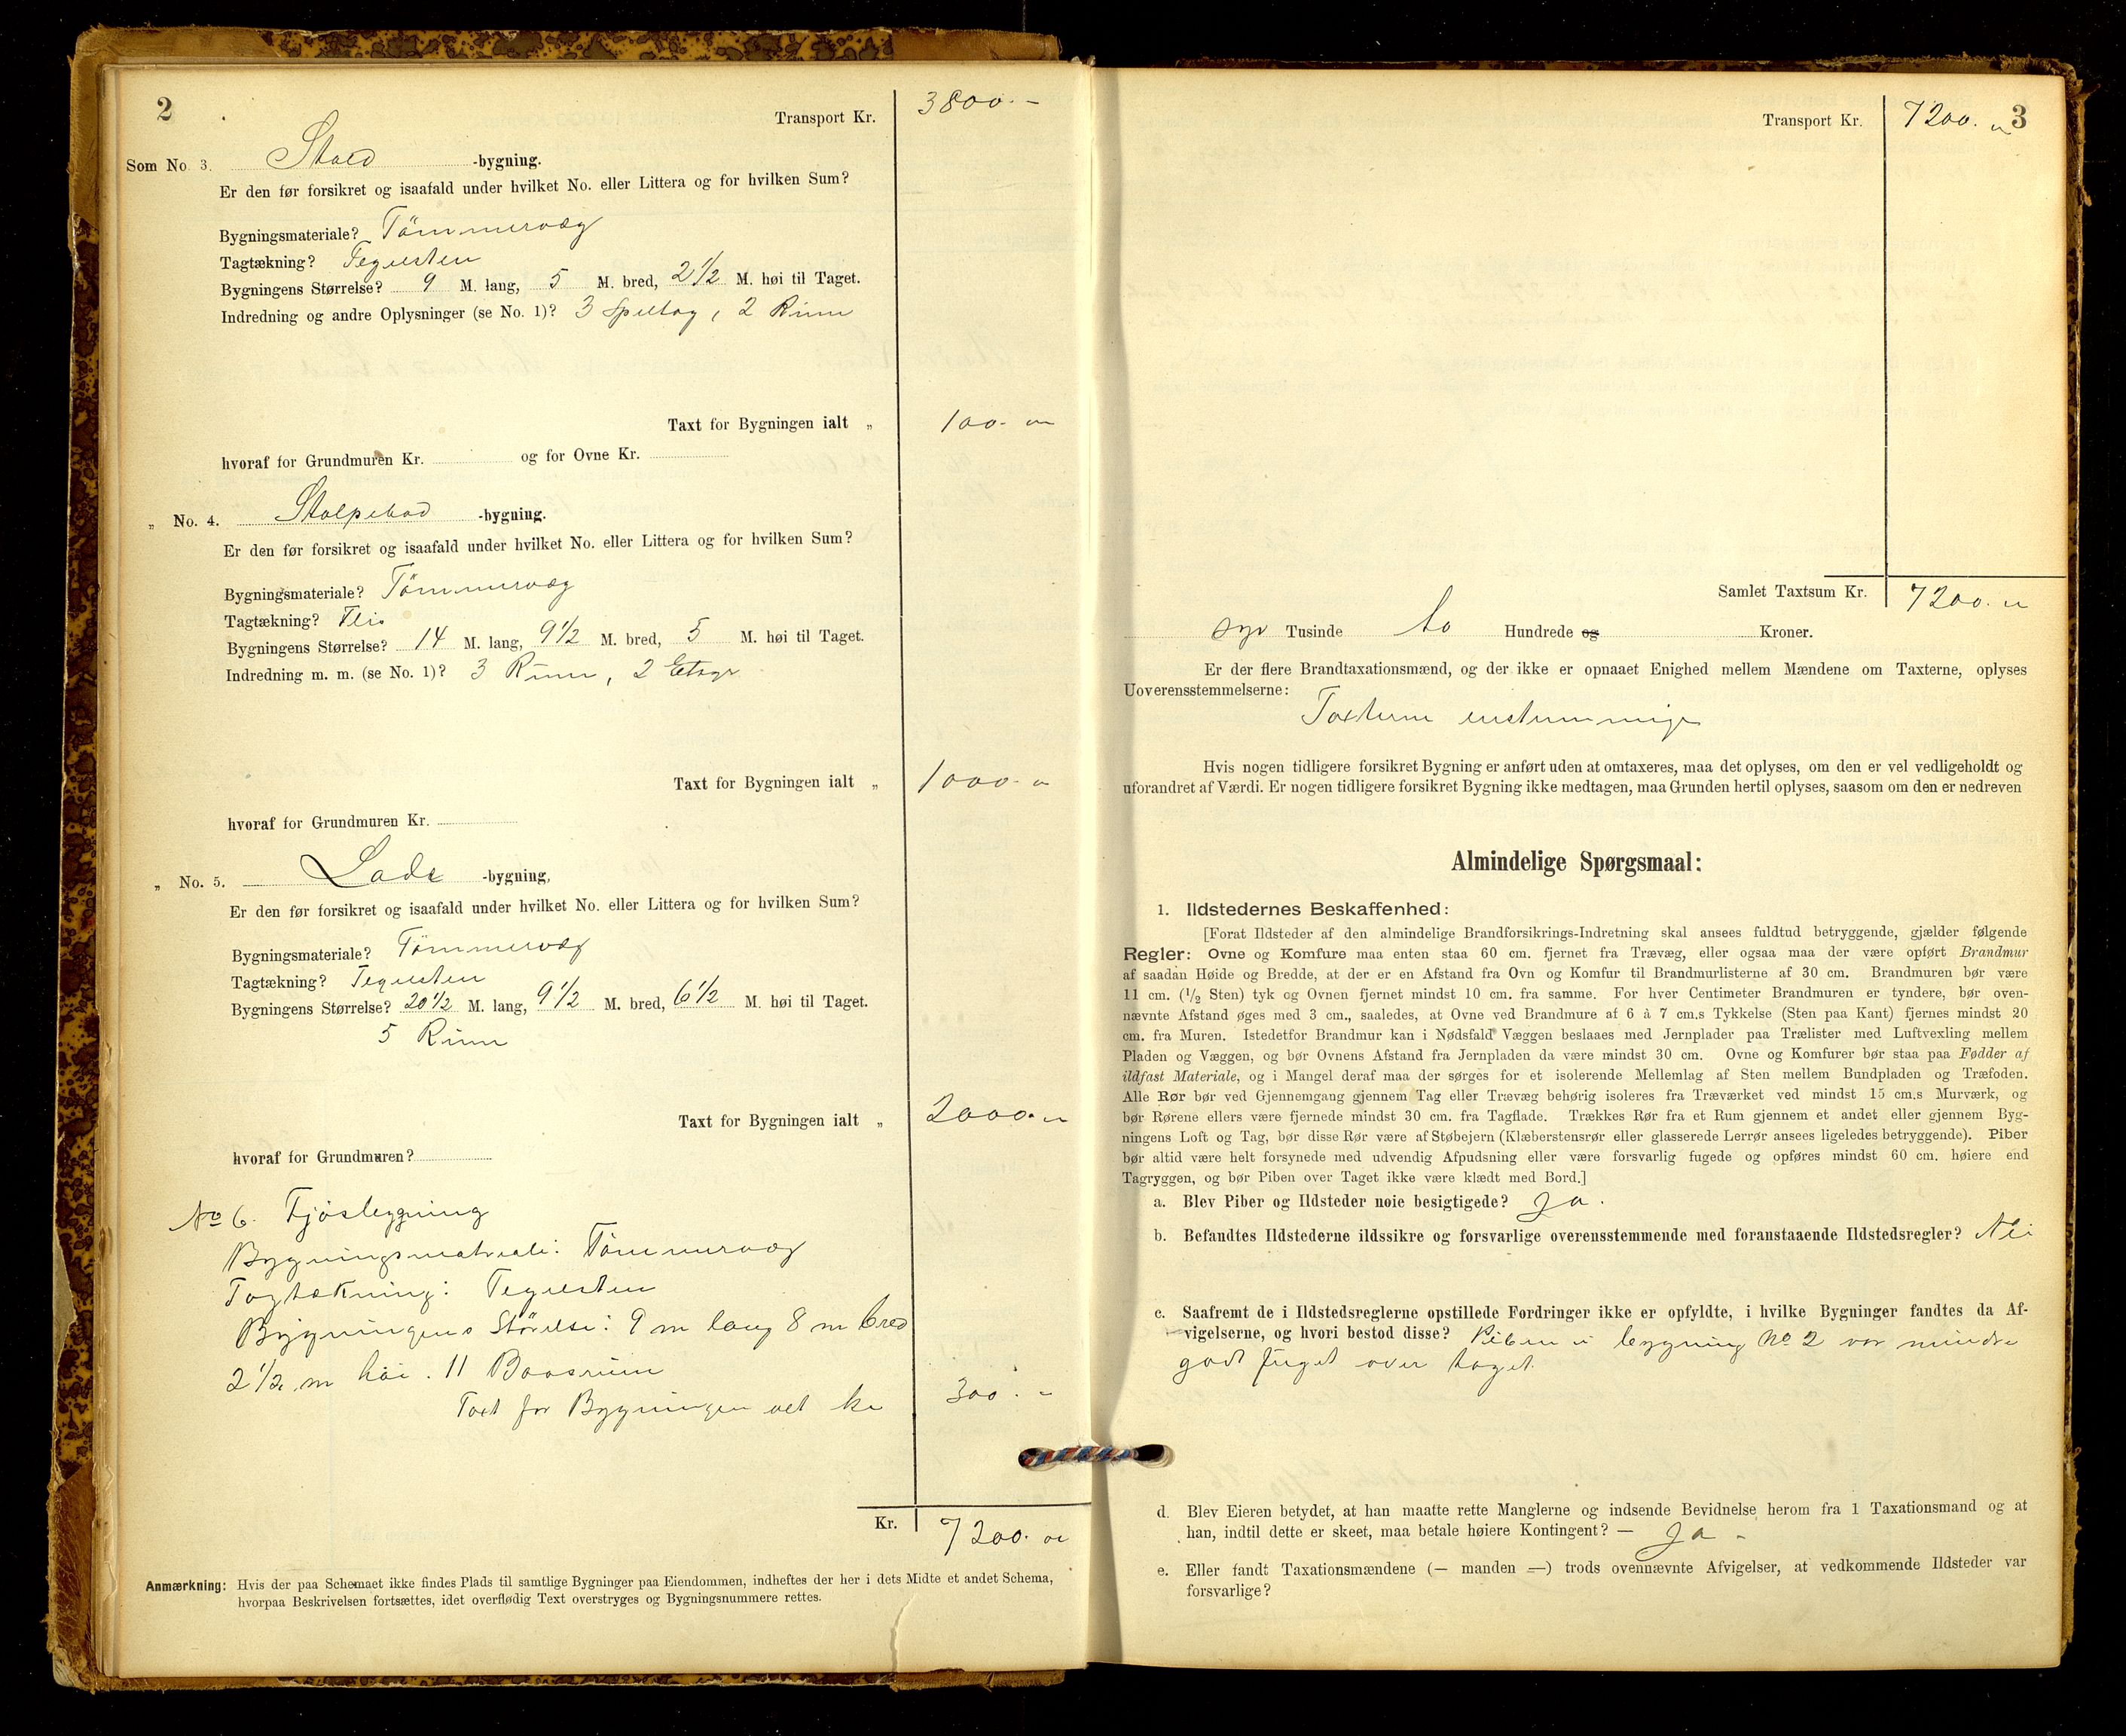 2
Transport Kr. 3800. -
Som No 3. Stald -bygning.
Er den før forsikret og isaafald under hvilket No. eller Littera og for hvilken Sum?
Bygningsmateriale? Tömmervæg
Tagtækning? Teglsten
Bygningens Størrelse? 9 M. lang, 5 M. bred, 2 1/2 M. høi til Taget.
Indredning og andre Oplysninger (se No. 1)? 3 Spiltog, 2 Rum
Taxt for Bygningen ialt „ 100. „
hvoraf for Grundmuren Kr. og for Ovne Kr.
„ No. 4. Stolpebod -bygning.
Er den før forsikret og isaafald under hvilket No. eller Littera og for hvilken Sum?
Bygningsmateriale? Tömmervæg
Tagtækning? Flis
Bygningens Størrelse? 14 M. lang, 9 1/2 M. bred, 5 M. høi til Taget.
Indredning m. m. (se No. 1)? 3 Rum, 2 Etager
Taxt for Bygningen ialt „ 1000. „
hvoraf for Grundmuren Kr.
„ No. 5. Lade -bygning,
Er den før forsikret og isaafald under hvilket No. eller Littera og for hvilken Sum?
Bygningsmateriale? Tömmervæg
Tagtækning? Teglsten
Bygningens Størrelse? 20 1/2 M. lang, 9 1/2 M. bred, 6 1/2 M. høi til Taget.
5 Rum
Taxt for Bygningen ialt „ 2000. „
hvoraf for Grundmuren?
No 6. Fjösbygning
Bygningsmateriale: Tömmervæg
Tagtækning: Teglsten
Bygningens Störelse: 9 m lang 8 m bred
2 1/2 m höi. 11 Baasrum
Taxt for Bygningen alt kr 300. -
Kr. 7200. „
Anmærkning: Hvis der paa Schemaet ikke findes Plads til samtlige Bygninger paa Eiendommen, indheftes der her i dets Midte et andet Schema,
hvorpaa Beskrivelsen fortsættes, idet overflødig Text overstryges og Bygningsnummere rettes.
3
Transport Kr. 7200. „
Samlet Taxtsum Kr. 7200. „
syv Tusinde to Hundrede og Kroner.
Er der flere Brandtaxationsmænd, og der ikke er opnaaet Enighed mellem Mændene om Taxterne, oplyses
Uoverensstemmelserne:
Taxterne enstemmige
Hvis nogen tidligere forsikret Bygning er anført uden at omtaxeres, maa det oplyses, om den er vel vedligeholdt og
uforandret af Værdi. Er nogen tidligere forsikret Bygning ikke medtagen, maa Grunden hertil oplyses, saasom om den er nedreven
Almindelige Spørgsmaal:
1. Ildstedernes Beskaffenhed:
[Forat Ildsteder af den almindelige Brandforsikrings-Indretning skal ansees fuldtud betryggende, gjælder følgende
Regler: Ovne og Komfure maa enten staa 60 cm. fjernet fra Trævæg, eller ogsaa maa der være opført Brandmur
af saadan Høide og Bredde, at der er en Afstand fra Ovn og Komfur til Brandmurlisterne af 30 cm. Brandmuren bør være
11 cm. (1/2 Sten) tyk og Ovnen fjernet mindst 10 cm. fra samme. For hver Centimeter Brandmuren er tyndere, bør oven-
nævnte Afstand øges med 3 cm., saaledes, at Ovne ved Brandmure af 6 à 7 cm.s Tykkelse (Sten paa Kant) fjernes mindst 20
cm. fra Muren. Istedetfor Brandmur kan i Nødsfald Væggen beslaaes med Jernplader paa Trælister med Luftvexling mellem
Pladen og Væggen, og bør Ovnens Afstand fra Jernpladen da være mindst 30 cm. Ovne og Komfurer bør staa paa Fødder af
ildfast Materiale, og i Mangel deraf maa der sørges for et isolerende Mellemlag af Sten mellem Bundpladen og Træfoden.
Alle Rør bør ved Gjennemgang gjennem Tag eller Trævæg behørig isoleres fra Træværket ved mindst 15 cm.s Murværk, og
bør Rørene ellers være fjernede mindst 30 cm. fra Tagflade. Trækkes Rør fra et Rum gjennem et andet eller gjennem Byg-
ningens Loft og Tag, bør disse Rør være af Støbejern (Klæberstensrør eller glasserede Lerrør ansees ligeledes betryggende). Piber
bør altid være helt forsynede med udvendig Afpudsning eller være forsvarlig fugede og opføres mindst 60 cm. høiere end
Tagryggen, og bør Piben over Taget ikke være klædt med Bord.]
a. Blev Piber og Ildsteder nøie besigtigede? Ja.
b. Befandtes Ildstederne ildssikre og forsvarlige overensstemmende med foranstaaende Ildstedsregler? Nei
c. Saafremt de i Ildstedsreglerne opstillede Fordringer ikke er opfyldte, i hvilke Bygninger fandtes da Af-
vigelserne, og hvori bestod disse? Piben i bygning No 2 var mindre
godt fuget over taget.
d. Blev Eieren betydet, at han maatte rette Manglerne og indsende Bevidnelse herom fra 1 Taxationsmand og at
han, indtil dette er skeet, maa betale høiere Kontingent? — Ja -
e. Eller fandt Taxationsmændene (— manden —) trods ovennævnte Afvigelser, at vedkommende Ildsteder var
forsvarlige?